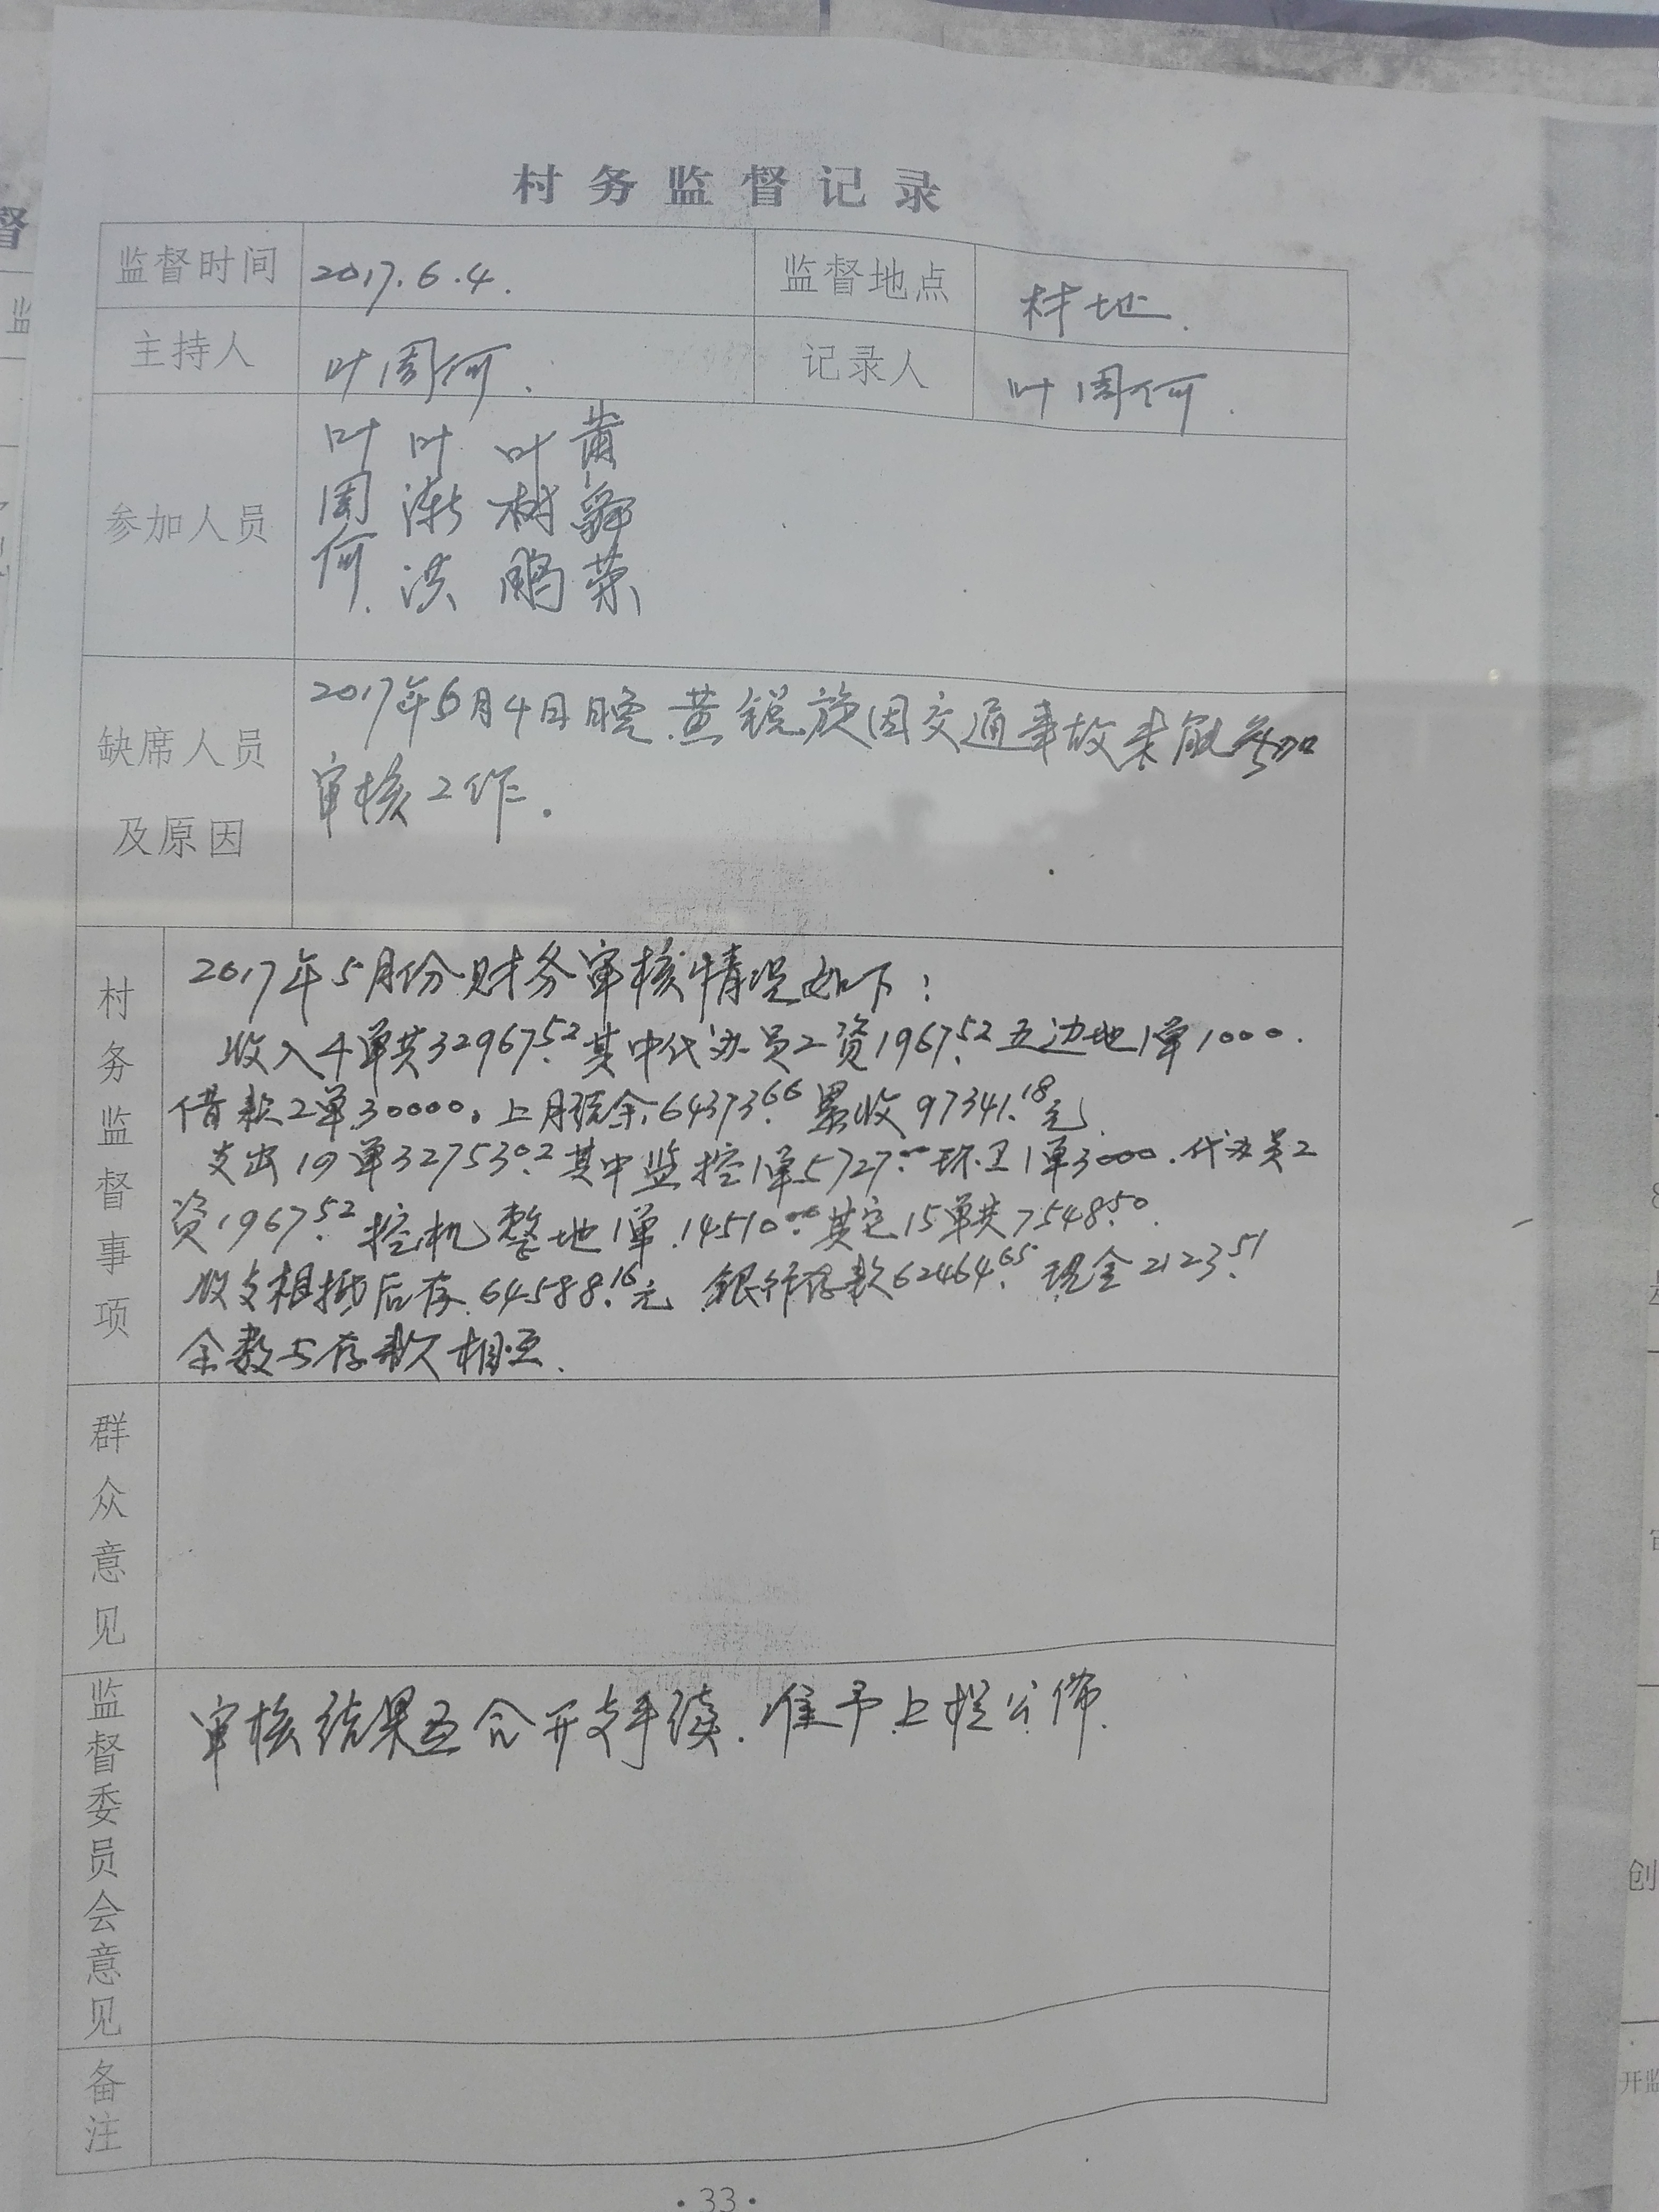 村务监督记录
监督时间 2017.6.4. 监督地点 村地.
主持人 叶周何. 记录人 叶周何.
参加人员 叶周何. 叶渐洪 叶树鹏 黄舜荣
缺席人员及原因
2017年6月4日晚.黄锐旋因交通事故未能参加
审核工作.
村务监督事项
2017年5月份财务审核情况如下:
收入4单共32967.52 其中代办员工资1967.52 五边地1单1000.
借款2单30000. 上月现余.64373.66 累收97341.18元.
支出19单32753.02 其中监控1单5727.00 环卫1单3000.代办员工
资1967.52 挖机整地1单.14510.00 其它15单共7548.50.
收支相抵后存.64588.16元 银行存款62464.65 现金2123.51
余数与存款相互.
群众意见
监督委员会意见
审核结果互合开支手续.准予上栏公佈.
备注
·33·
督
创